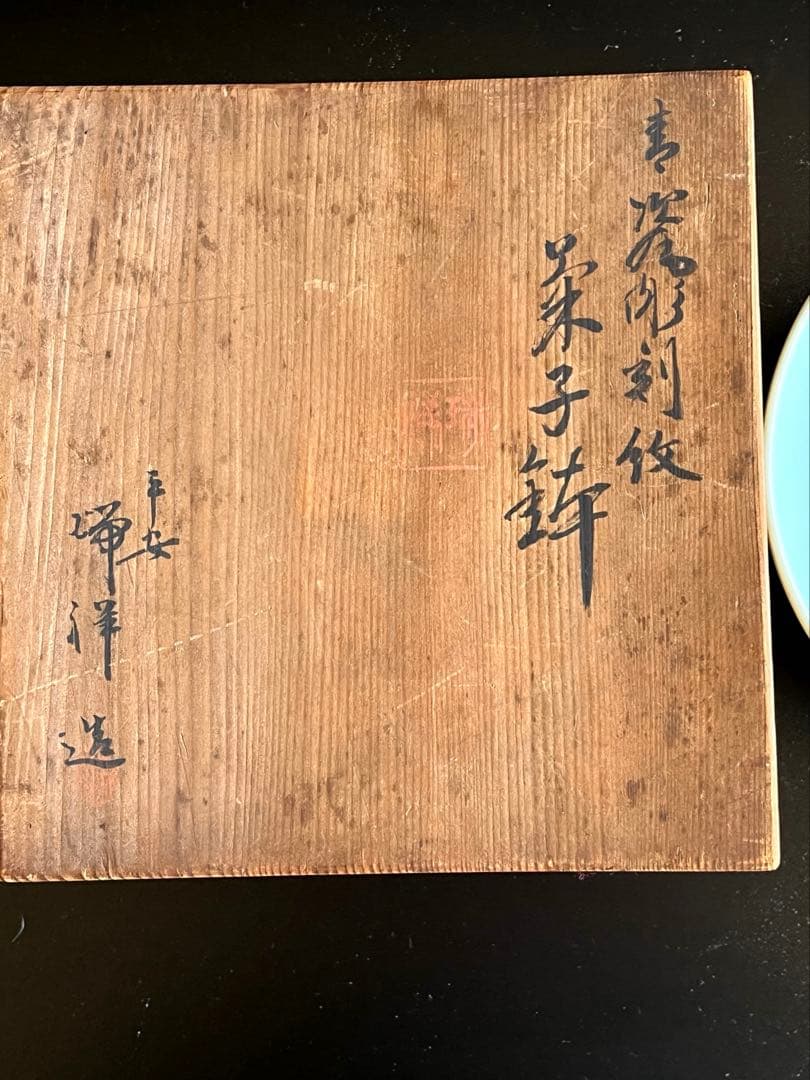 青瓷彫刻紋
菓子鉢
平安
瑞祥造